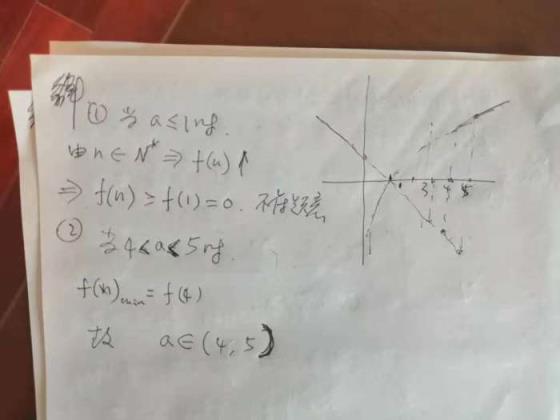 解
① 当 a≤1时.
由n∈N* ⇒ f(n)↑
⇒ f(n)≥f(1)=0. 不符题意
② 当4<a<5时.
f(n)min=f(4)
故 a∈(4,5)
3 4 5